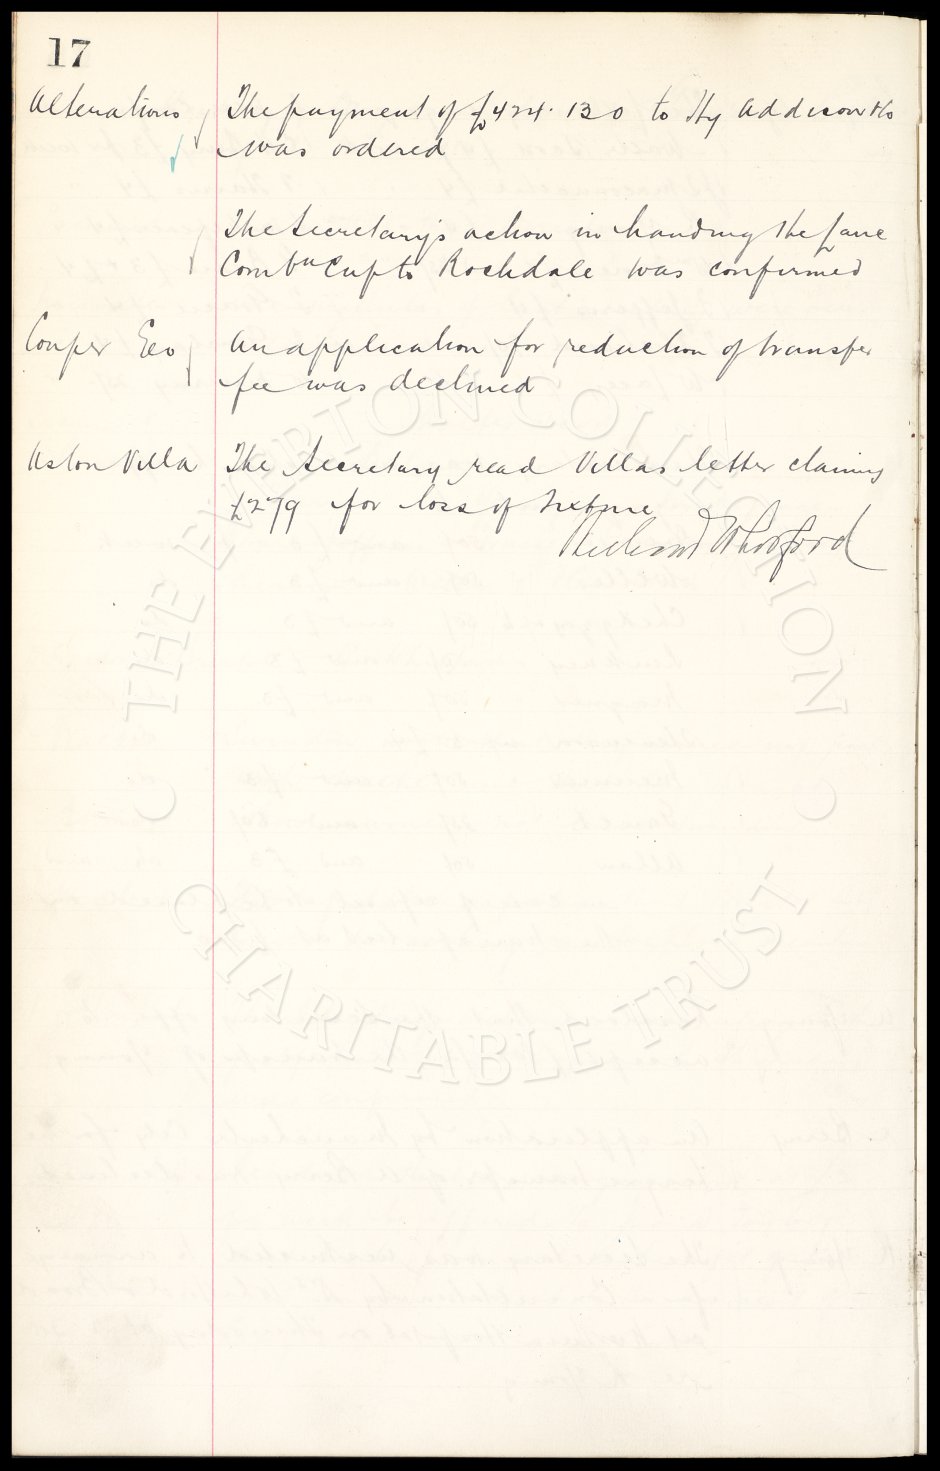 17
Alterations The payment of £424. 13 0 to Hy Addison & Co
was ordered
The Secretary's action in handing the Lanc
Combn Cup to Rochdale was confirmed
Couper Geo An application for reduction of transfer
fee was declined
Aston Villa The Secretary read Villas letter claiming
£279 for loss of fixture
THE EVERTON COLLECTION
CHARITABLE TRUST